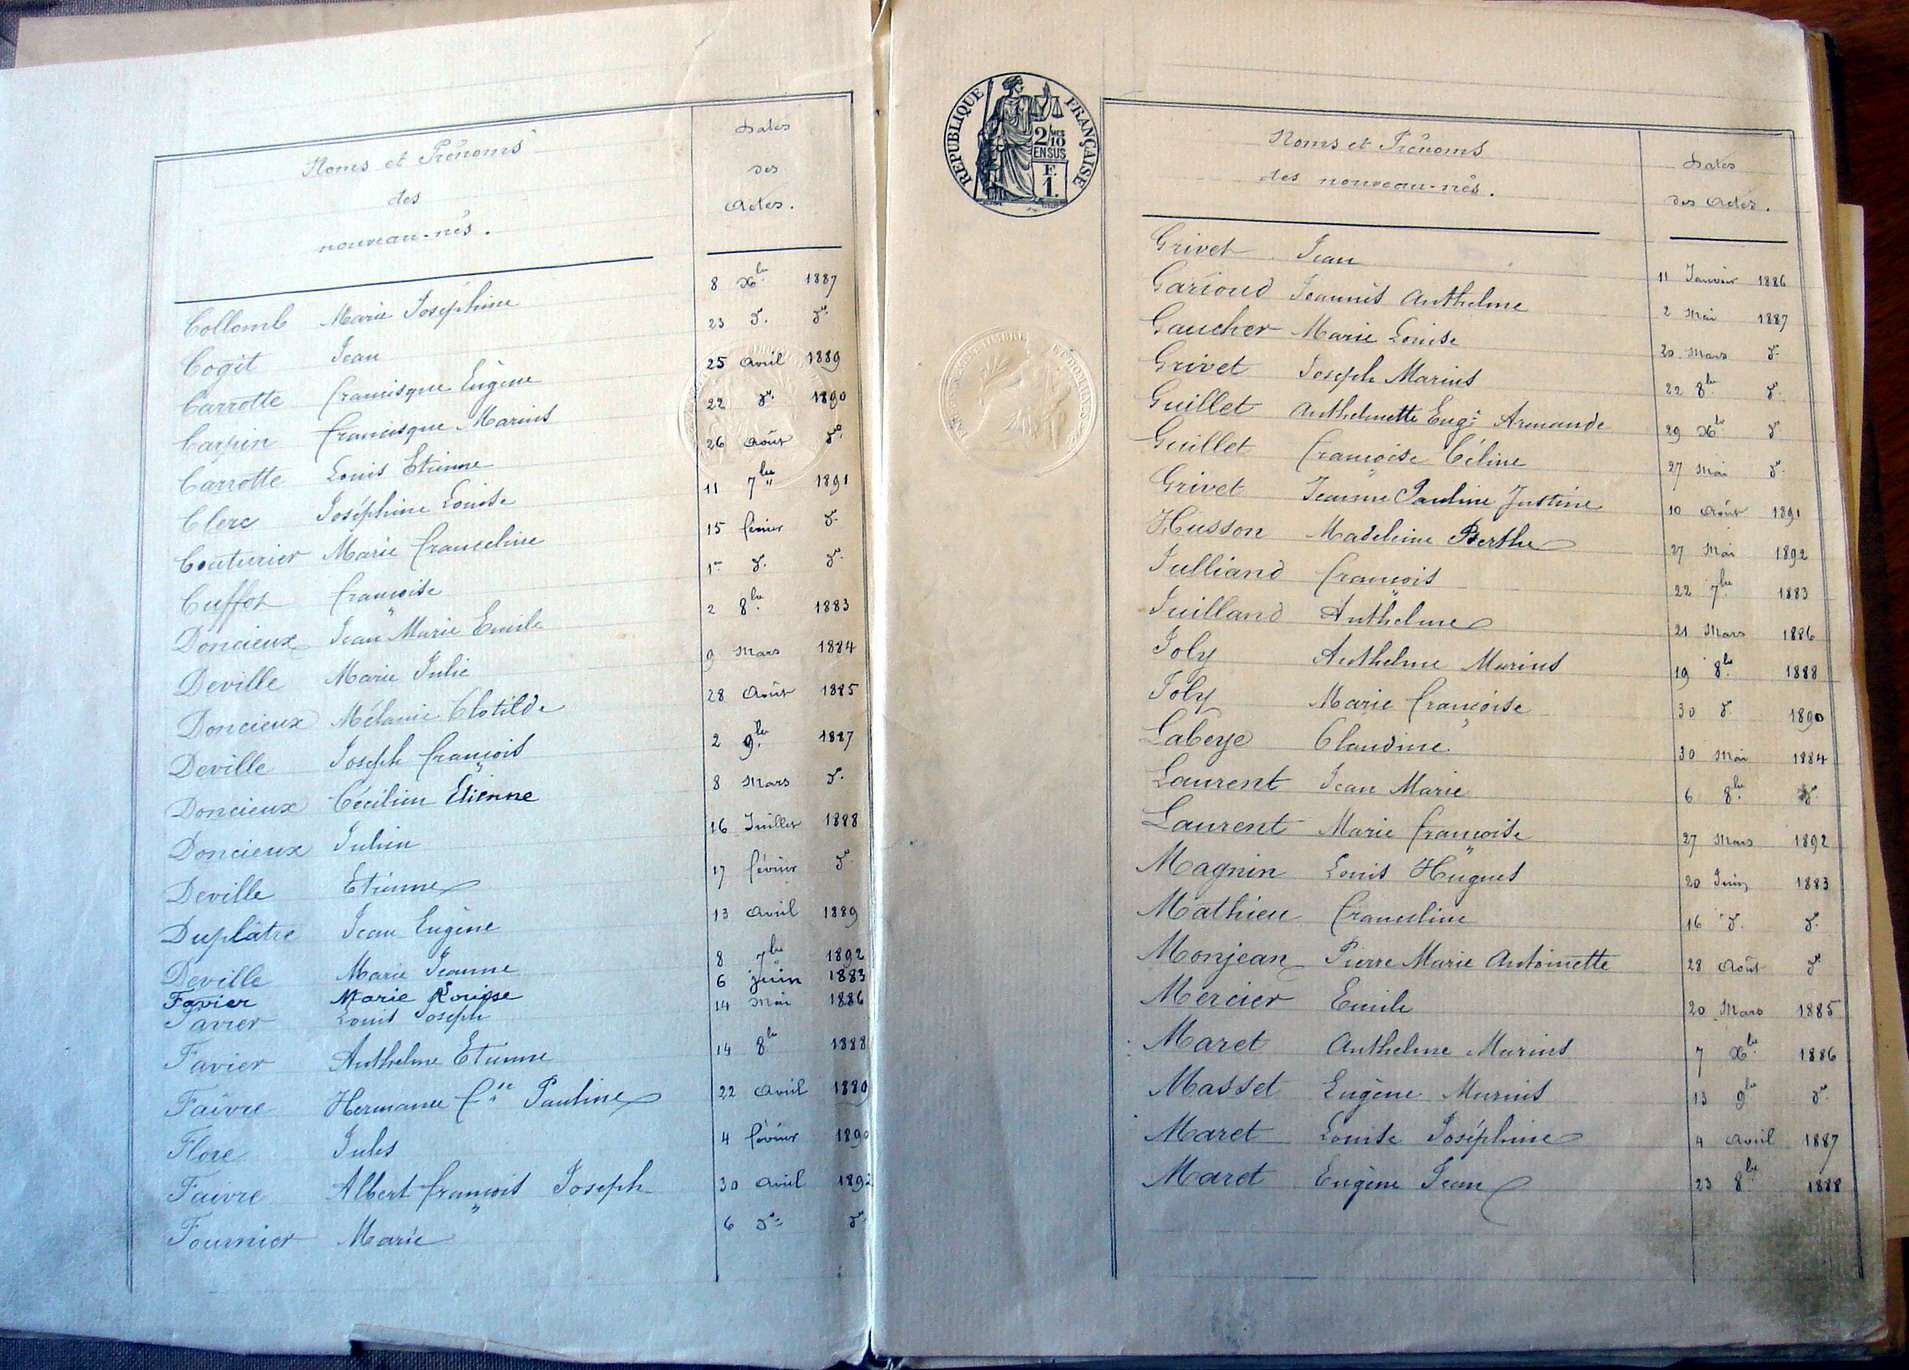 Noms et Prénoms
des
nouveau-nés.
Dates
des
Actes.
Collomb Marie Joséphine 8 Xbre 1887
Cogit Jean 23 do do
Carrotte françisque Eugène 25 Avril 1889
Carpin francisque Marius 22 do 1890
Carrotte Louis Etienne 26 Août do
Clerc Joséphine Louise 11 7bre 1891
Couturier Marie franceline 15 février do
Cuffot françoise 1er do do
Doncieux Jean Marie Emile 2 8bre 1883
Deville Marie Julie 9 Mars 1884
Doncieux Mélanie Clotilde 28 Août 1885
Deville Joseph françois 2 9bre 1887
Doncieux Cécilien Etienne 8 Mars do
Doncieux Julien 16 Juillet 1888
Deville Etienne 17 février do
Duplâtre Jean Eugène 13 Avril 1889
Deville Marie Jeanne 8 7bre 1892
Favier Marie Louise 6 juin 1883
Favier Louis Joseph 14 Mai 1886
Favier Anthelme Etienne 14 8bre 1888
Faivre Hermance fse Pauline 22 Avril 1889
Flore Jules 4 février 1890
Faivre Albert françois Joseph 30 Avril 1892
Fournier Marie 6 do do
RÉPUBLIQUE FRANÇAISE
2/10 MES
EN SUS
F.
1.
Noms et Prénoms
des nouveau-nés.
Dates
des Actes.
Grivet Jean 11 Janvier 1886
Garioud Jeannès Anthelme 2 Mai 1887
Gaucher Marie Louise 20 Mars do
Grivet Joseph Marius 22 8bre do
Guillet Anthelmette Eugie Armande 29 Xbre do
Guillet françoise Céline 27 Mai do
Grivet Jeanne Pauline Justine 10 Août 1891
Husson Madeleine Berthe 27 Mai 1892
Julliand françois 22 7bre 1883
Juilland Anthelme 21 Mars 1886
Joly Anthelme Marius 19 8bre 1888
Joly Marie françoise 30 do 1890
Labeye Claudine 30 Mai 1884
Laurent Jean Marie 6 8bre do
Laurent Marie françoise 27 Mars 1892
Magnin Louis Hugues 20 Juin 1883
Mathieu franceline 16 do do
Monjean Pierre Marie Antoinette 28 Août do
Mercier Emile 20 Mars 1885
Maret Anthelme Marius 7 Xbre 1886
Masset Eugène Marius 13 9bre do
Maret Louise Joséphine 4 Avril 1887
Maret Eugène Jean 23 8bre 1888